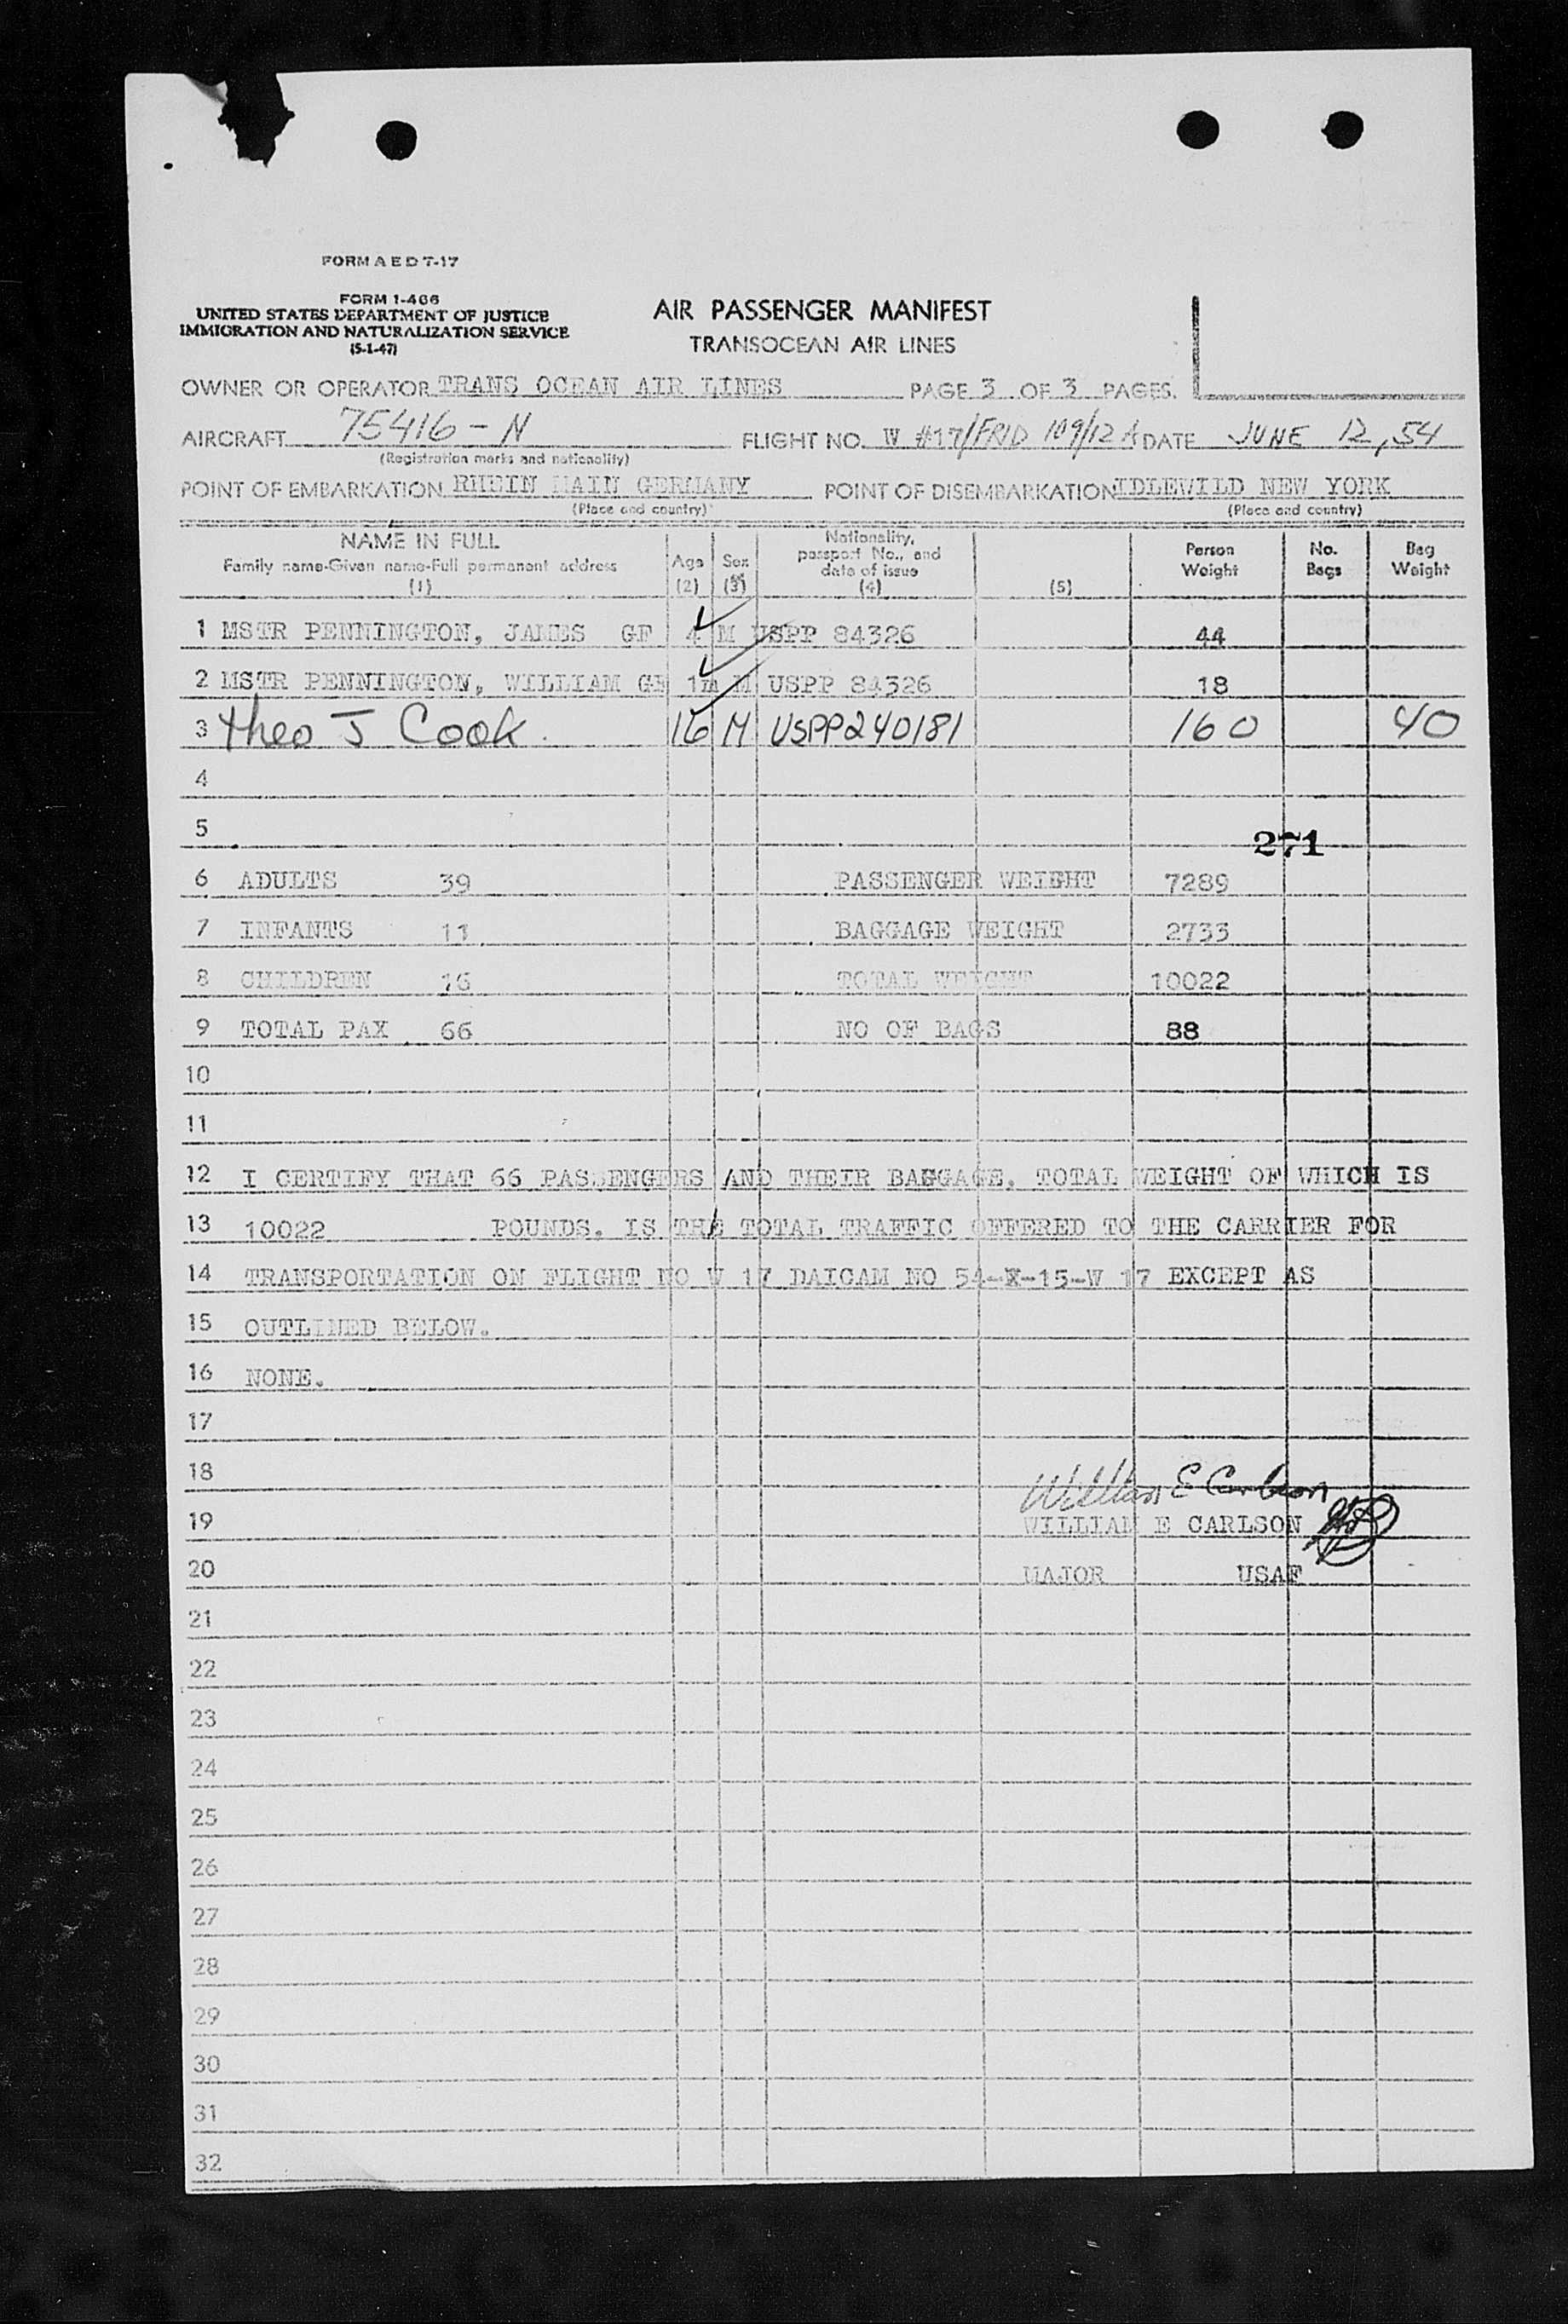 FORM A E D 7-17
FORM 1-466
UNITED STATES DEPARTMENT OF JUSTICE
IMMIGRATION AND NATURALIZATION SERVICE
(5-1-47)
AIR PASSENGER MANIFEST
TRANSOCEAN AIR LINES
OWNER OR OPERATOR TRANS OCEAN AIR LINES PAGE 3 OF 3 PAGES.
AIRCRAFT 75416-N FLIGHT NO. W #17/FRID 109/12A DATE JUNE 12, 54
(Registration marks and nationality)
POINT OF EMBARKATION RHEIN MAIN GERMANY POINT OF DISEMBARKATION IDLEWILD NEW YORK
(Place and country) (Place and country)
NAME IN FULL
Family name-Given name-Full permanent address
(1)
Age
(2)
Sex
(3)
Nationality,
passport No., and
date of issue
(4)
(5)
Person
Weight
No.
Bags
Bag
Weight
1 MSTR PENNINGTON, JAMES GF 4 M USPP 84326 44
2 MSTR PENNINGTON, WILLIAM GF 1M M USPP 84326 18
3 Theo J Cook. 16 M USPP240181 160 40
4
5
271
6 ADULTS 39 PASSENGER WEIGHT 7289
7 INFANTS 11 BAGGAGE WEIGHT 2733
8 CHILDREN 16 TOTAL WEIGHT 10022
9 TOTAL PAX 66 NO OF BAGS 88
10
11
12 I CERTIFY THAT 66 PASSENGERS AND THEIR BAGGAGE. TOTAL WEIGHT OF WHICH IS
13 10022 POUNDS. IS THE TOTAL TRAFFIC OFFERED TO THE CARRIER FOR
14 TRANSPORTATION ON FLIGHT NO W 17 DAICAM NO 54-X-15-W 17 EXCEPT AS
15 OUTLINED BELOW.
16 NONE.
17
18 William E Carlson
19 WILLIAM E CARLSON
20 MAJOR USAF
21
22
23
24
25
26
27
28
29
30
31
32